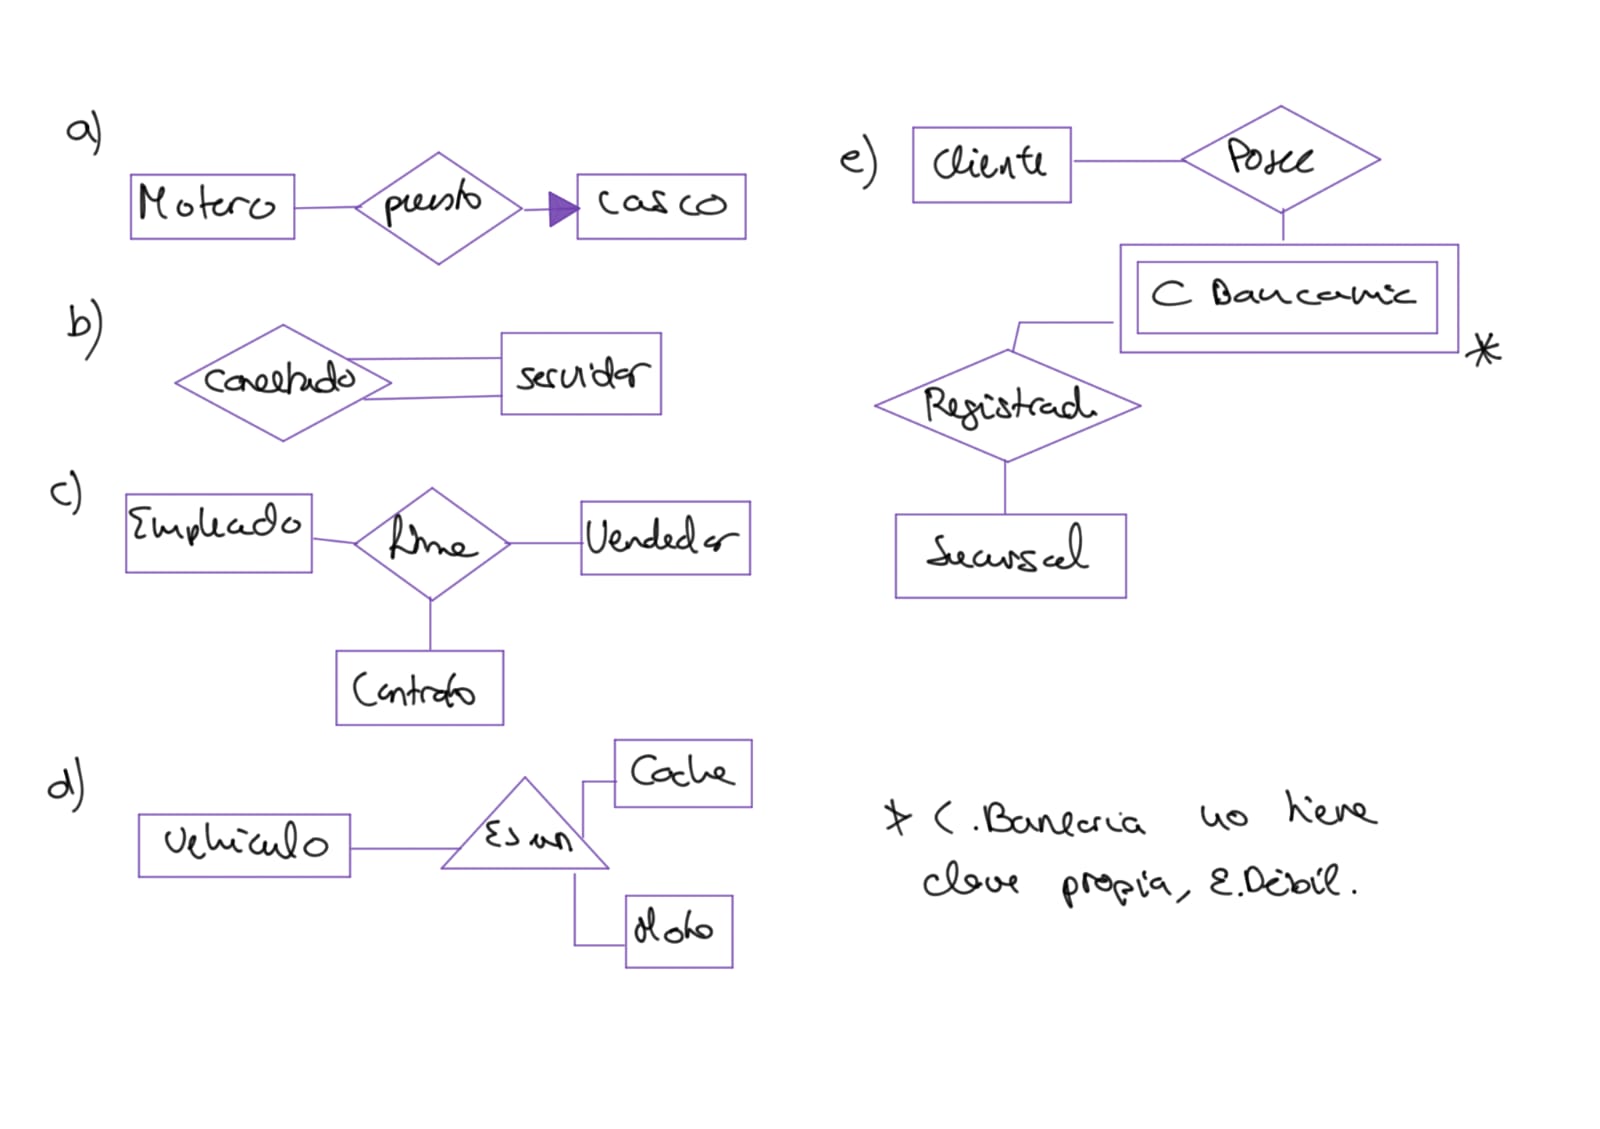 a)
Motero puesto casco
b)
Conectado servidor
c)
Empleado firma Vendedor
Contrato
d)
Vehiculo Es un Coche
Moto
e)
Cliente Posee
C Bancaria
*
Registrad
Sucursal
* C. Bancaria no tiene
clave propia, E. Débil.